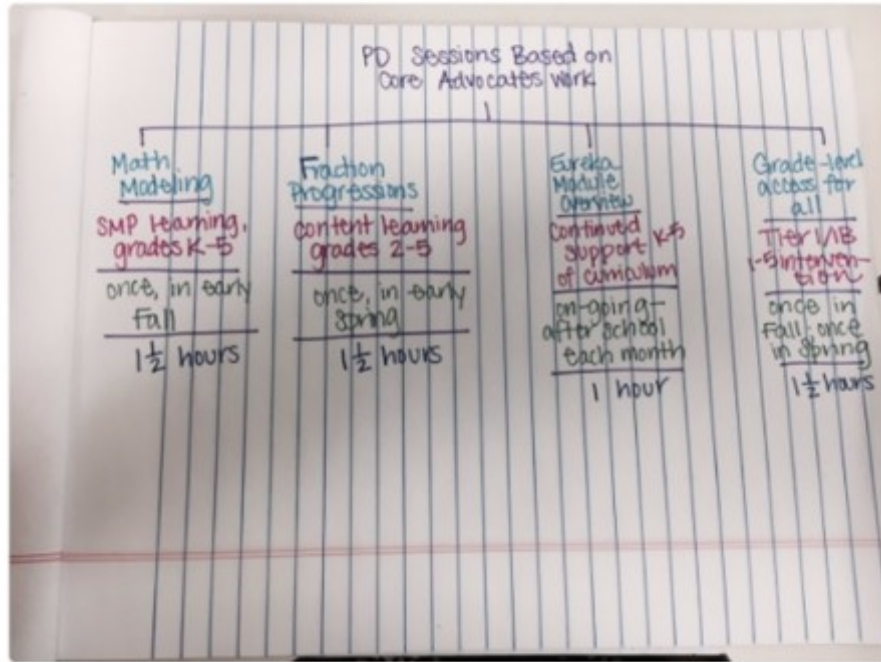 PD Sessions Based on
Core Advocates work
Math
Modeling
SMP learning,
grades K-5
once, in early
Fall
1½ hours
Fraction
Progressions
content learning
grades 2-5
once, in early
Spring
1½ hours
Eureka
Module
Overview
Continued
support K-5
of curriculum
on-going-
after school
each month
1 hour
Grade-level
access for
all
Tier I/IB
1-5 interven-
tion
once in
Fall, once
in Spring
1½ hours